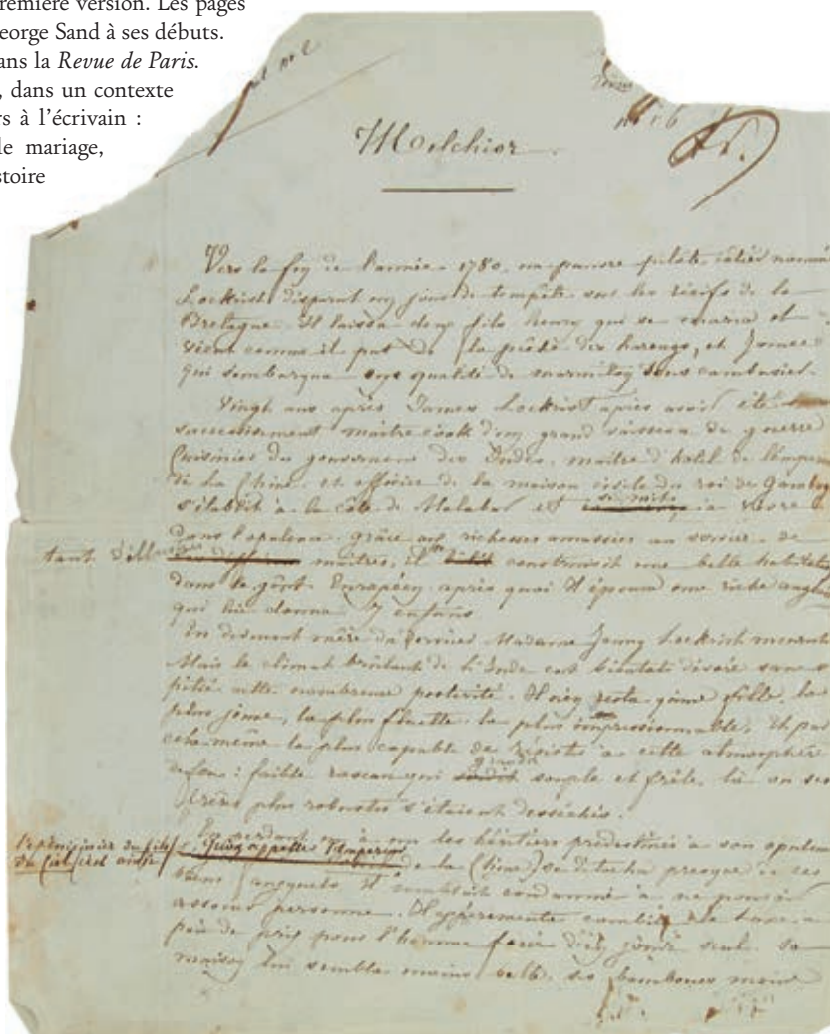 première version. Les pages
eorge Sand à ses débuts.
ans la Revue de Paris.
, dans un contexte
rs à l'écrivain :
le mariage,
stoire
Melchior.
Vers la fin de l'année 1780, un pauvre pilote côtier nommé
Lockrist disparut un jour de tempête sous les récifs de la
Bretagne. Il laissa deux fils henry qui se maria et
vécut comme il put de la pêche des harengs, et James
qui s'embarqua en qualité de marmiton
Vingt ans après James Lockrist après avoir été
successivement maître cook d'un grand vaisseau de guerre
Cuisinier du gouverneur des Indes, maître d'hôtel de l'emper
de la Chine, et officier de la maison civile du roi de Camboge
s'établit à la côte de Malabar et se mit à vivre
dans l'opulence grâce aux richesses amassées au service de
tant d'illustres maîtres, il construisit une belle habitation
dans le goût Européen après quoi il épousa une riche angl
qui lui donna 7 enfans
En donnant naiss du dernier Madame Jenny Lockrist mourut
Mais le climat brûlant de l'Inde eut bientôt dévoré sans
pitié cette nombreuse postérité. Il n'en resta qu'une fille, la
plus jeune, la plus fluette la plus impressionnable, et par
cela même la plus capable de résister à cette atmosphère
de feu : faible roseau qui grandit souple et frêle, là où ses
frères plus robustes s'étaient desséchés.
En perdant un à un les héritiers prédestinés à son opulence
l'ex cuisinier du fils
du Ciel
de la Chine) se détacha presque de ses
biens auxquels il semblait condamné à ne pouvoir
associer personne. Il combien le luxe a
peu de prix pour l'homme d'en jouir seul. sa
maison lui sembla moins belle, ses bambous moins